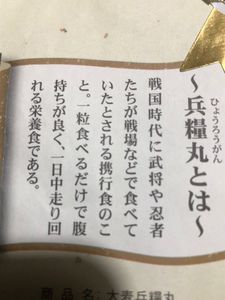 ～兵糧丸とは～
ひょうろうがん
戦国時代に武将や忍者
たちが戦場などで食べて
いたとされる携行食のこ
と。一粒食べるだけで腹
持ちが良く、一日中走り回
れる栄養食である。
商品名：大麦兵糧丸